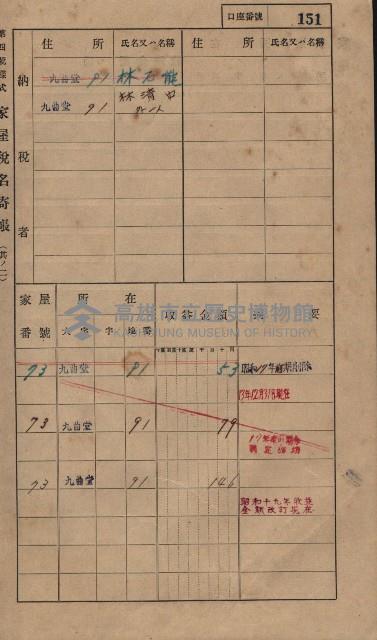 口座番號 151
第四號樣式 家屋稅名寄帳 (其ノ二)
納稅者
住所 氏名又ハ名稱 住所 氏名又ハ名稱
九曲堂 91 林石能
九曲堂 91 林清
外一人
家屋番號 所在 收益金額 摘要
大字 字 地番
73 九曲堂 91 53 昭和17年前期削除
13年12月31日現在
73 九曲堂 91 79
17年前期
73 九曲堂 91 146
昭和十九年收益
金額改訂現在
高雄市立歷史博物館
KAOHSIUNG MUSEUM OF HISTORY